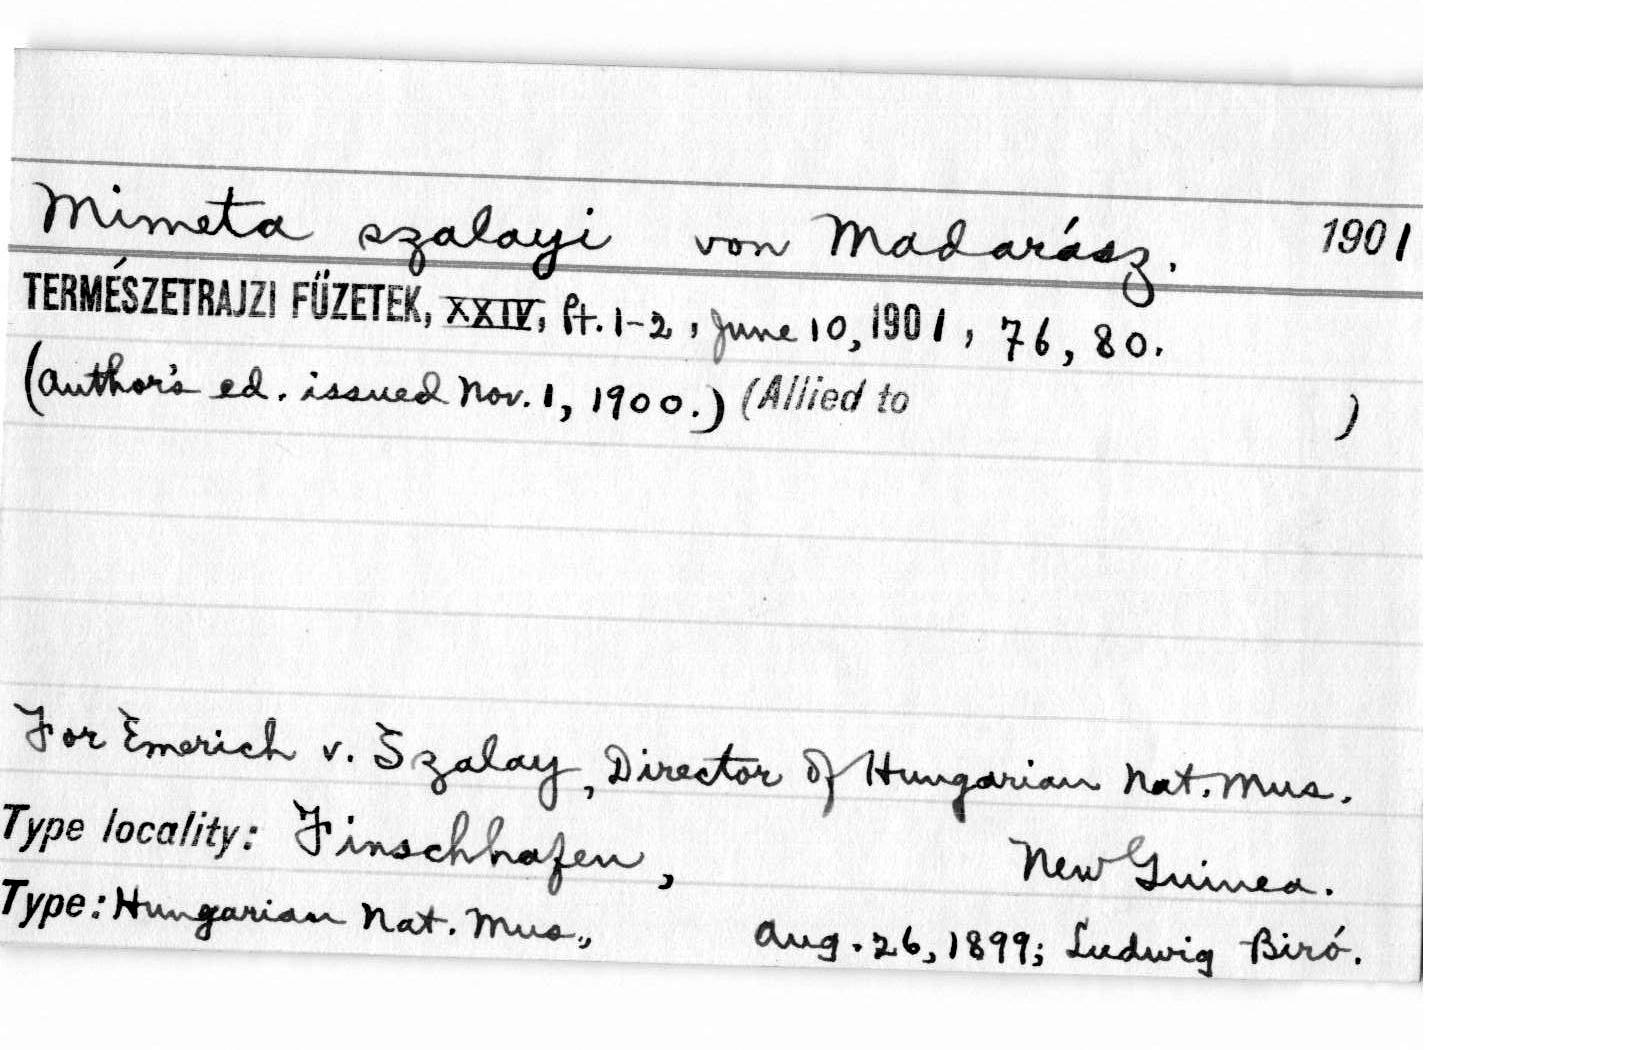 Mimeta szalayi von Madarász. 1901
TERMÉSZETRAJZI FÜZETEK, XXIV, Pt. 1-2, June 10, 1901, 76, 80.
(Author's ed. issued Nov. 1, 1900.) (Allied to )
For Emerich v. Szalay, Director of Hungarian Nat. Mus.
Type locality: Finschhafen, New Guinea.
Type: Hungarian Nat. Mus., Aug. 26, 1899; Ludwig Biró.